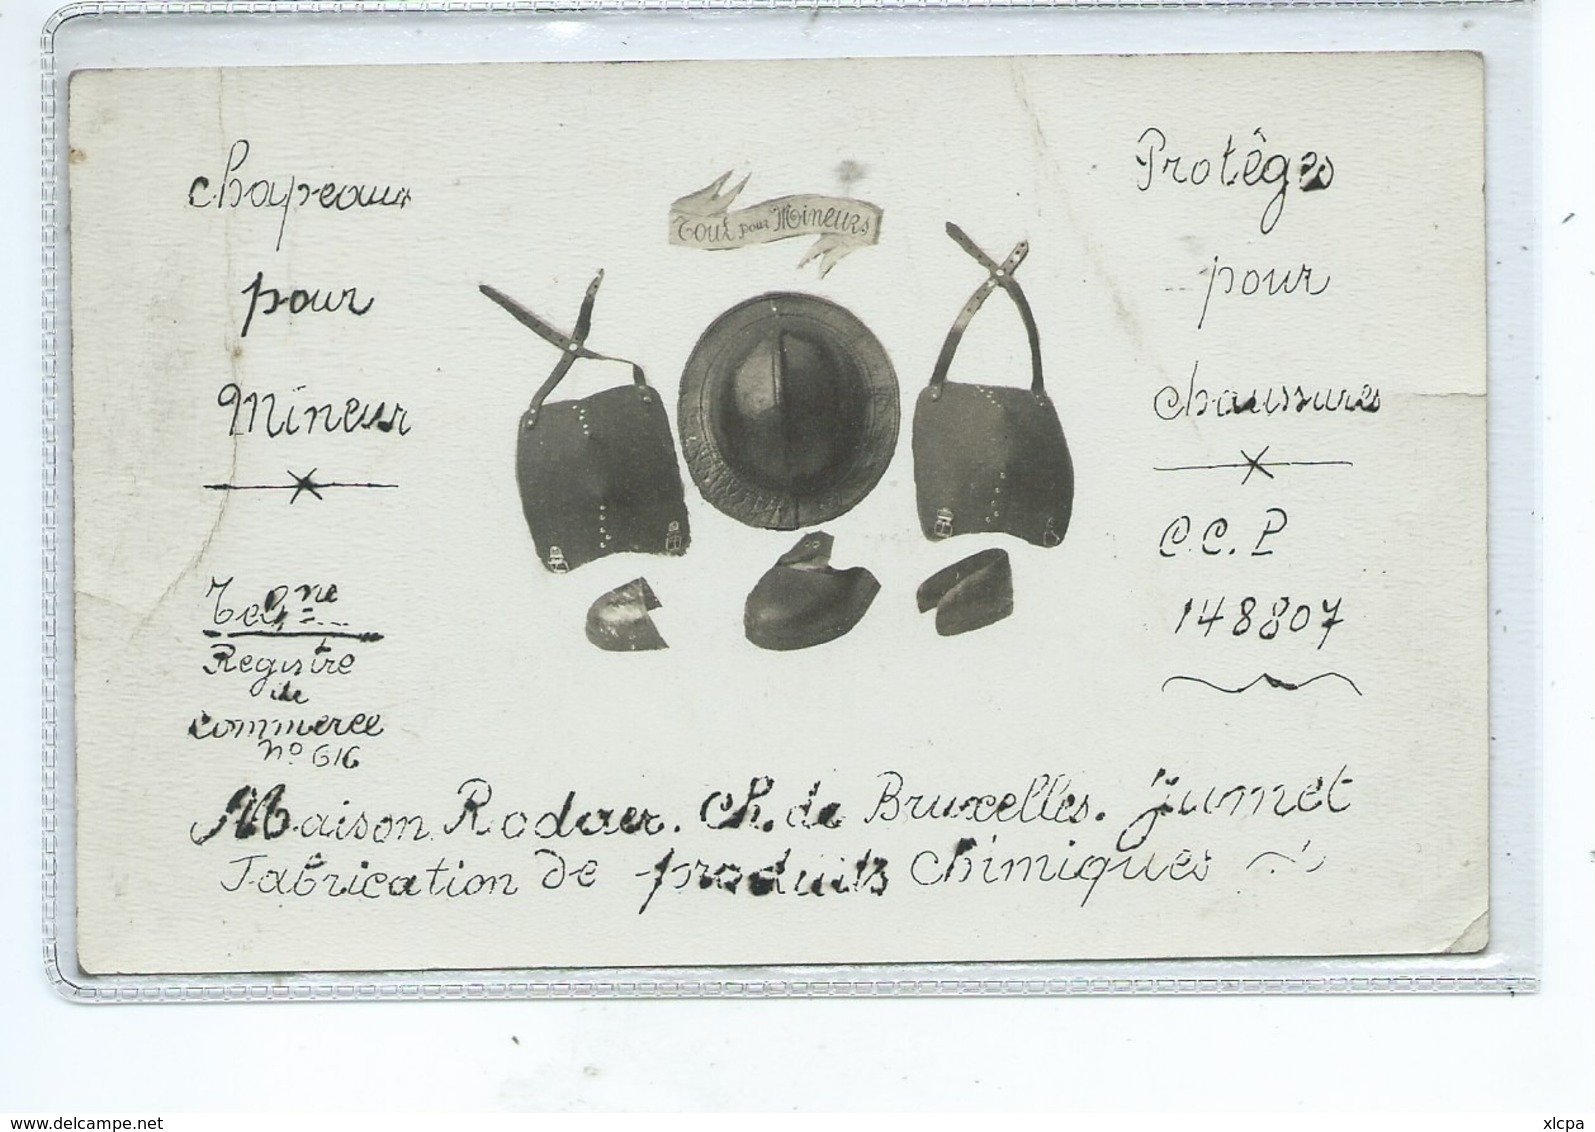 Chapeaux
pour
Mineur
Tout pour Mineurs
Protêges
pour
chaussures
C.C.P
148807
Registre
de
commerce
no 616
Maison Ch. de Bruxelles. Jumet
Fabrication de produits chimiques
www.delcampe.net
xlcpa